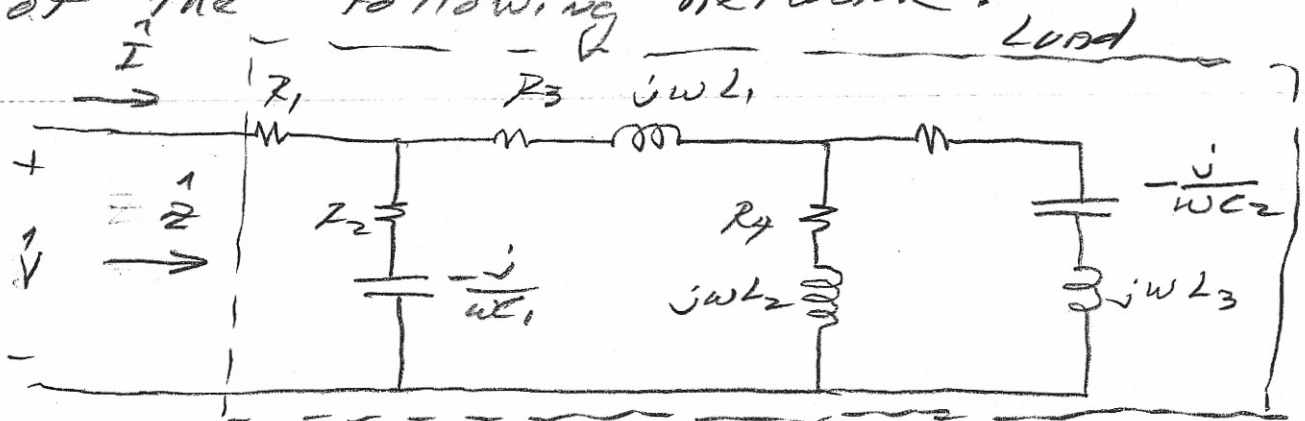 of the following network.
Load
Î
R₁
R₃
jωL₁
+
Ẑ
V̂
-
R₂
-j/ωC₁
R₄
jωL₂
-j/ωC₂
jωL₃